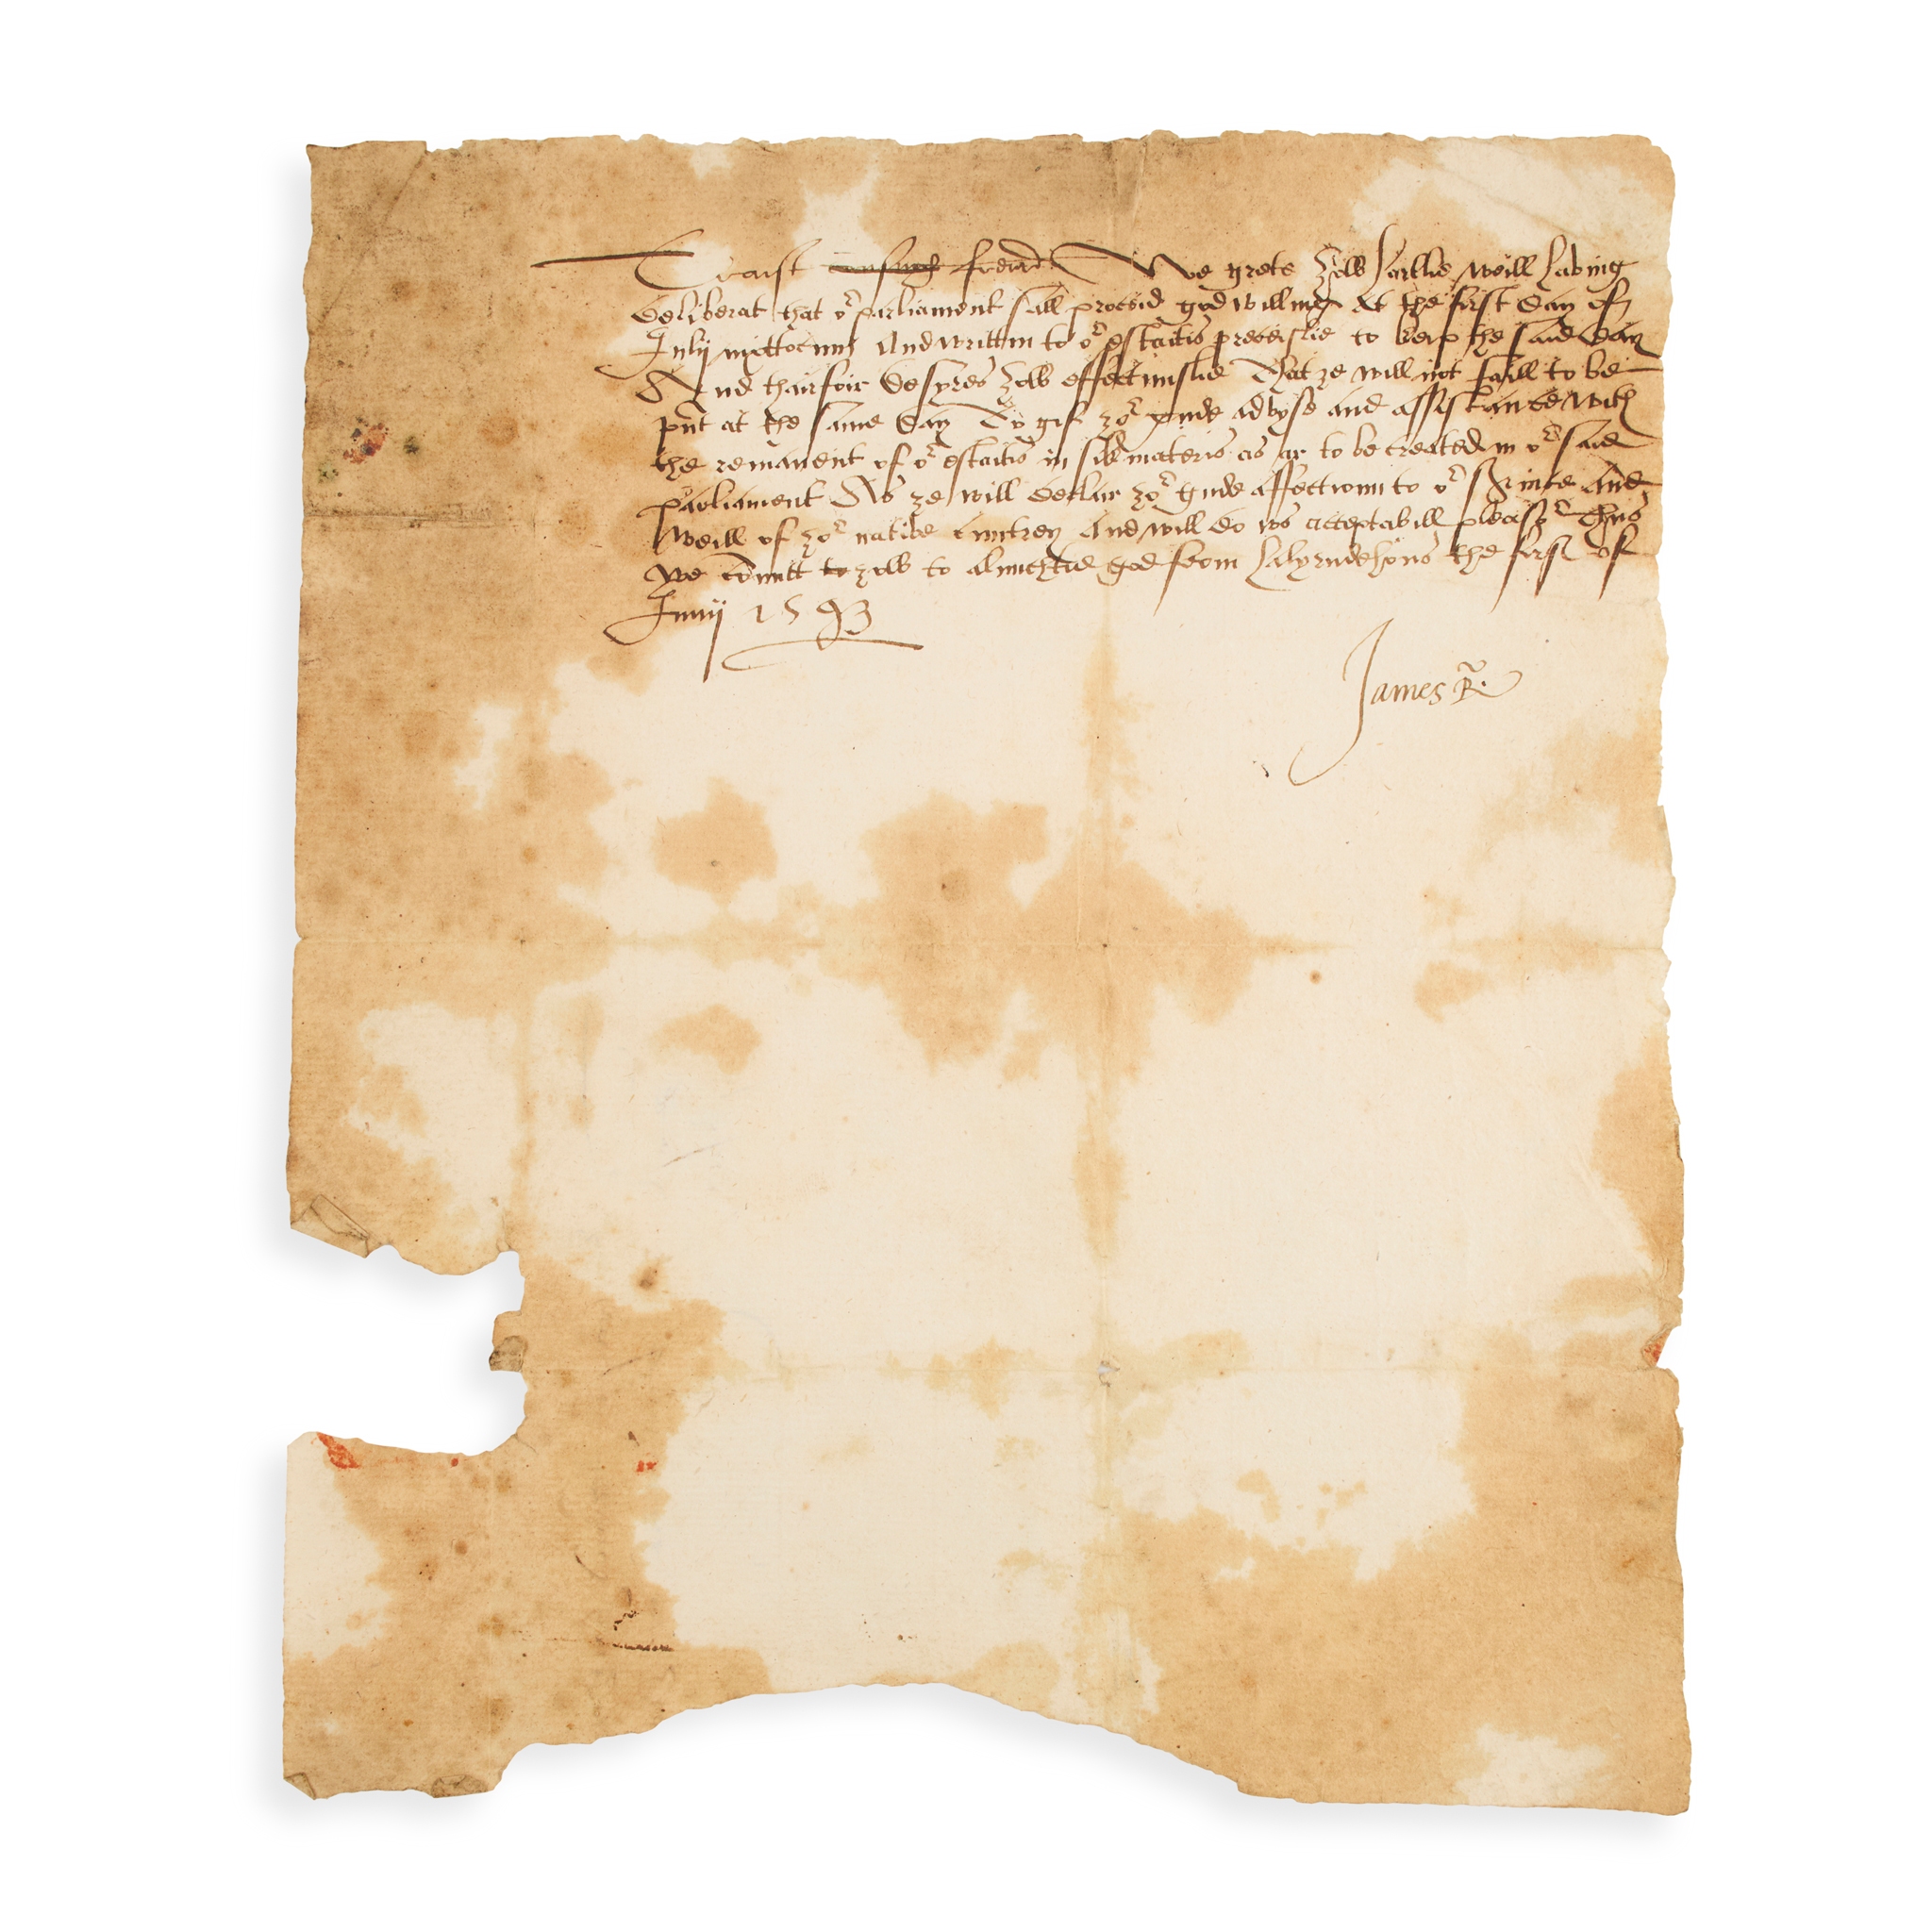 Traist cousing freind We grete zow hartlie weill haveing
deliberat that or parliament sall proceid god willing At the first day of
Julij nixttocum And writtin to or estaitis preceislie to keip the said day
And thairfoir desyres zow effectuuslie That ze will not faill to be
pnt at the same day To gif zor gude advyse and assistance with
the remanent of or estaitis in sik materis as ar to be treated in or said
parliament As ze will declar zor gude affectioun to or service And
weill of zor native cuntrey And will do ws acceptabill pleasr Thus
We comitt to zow to almichtie god from halyrudehous the first of
Junij 1593
James R.